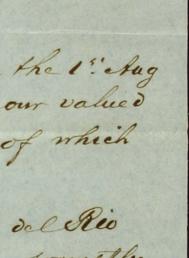 the 1st Aug
our valued
of which
del Rio